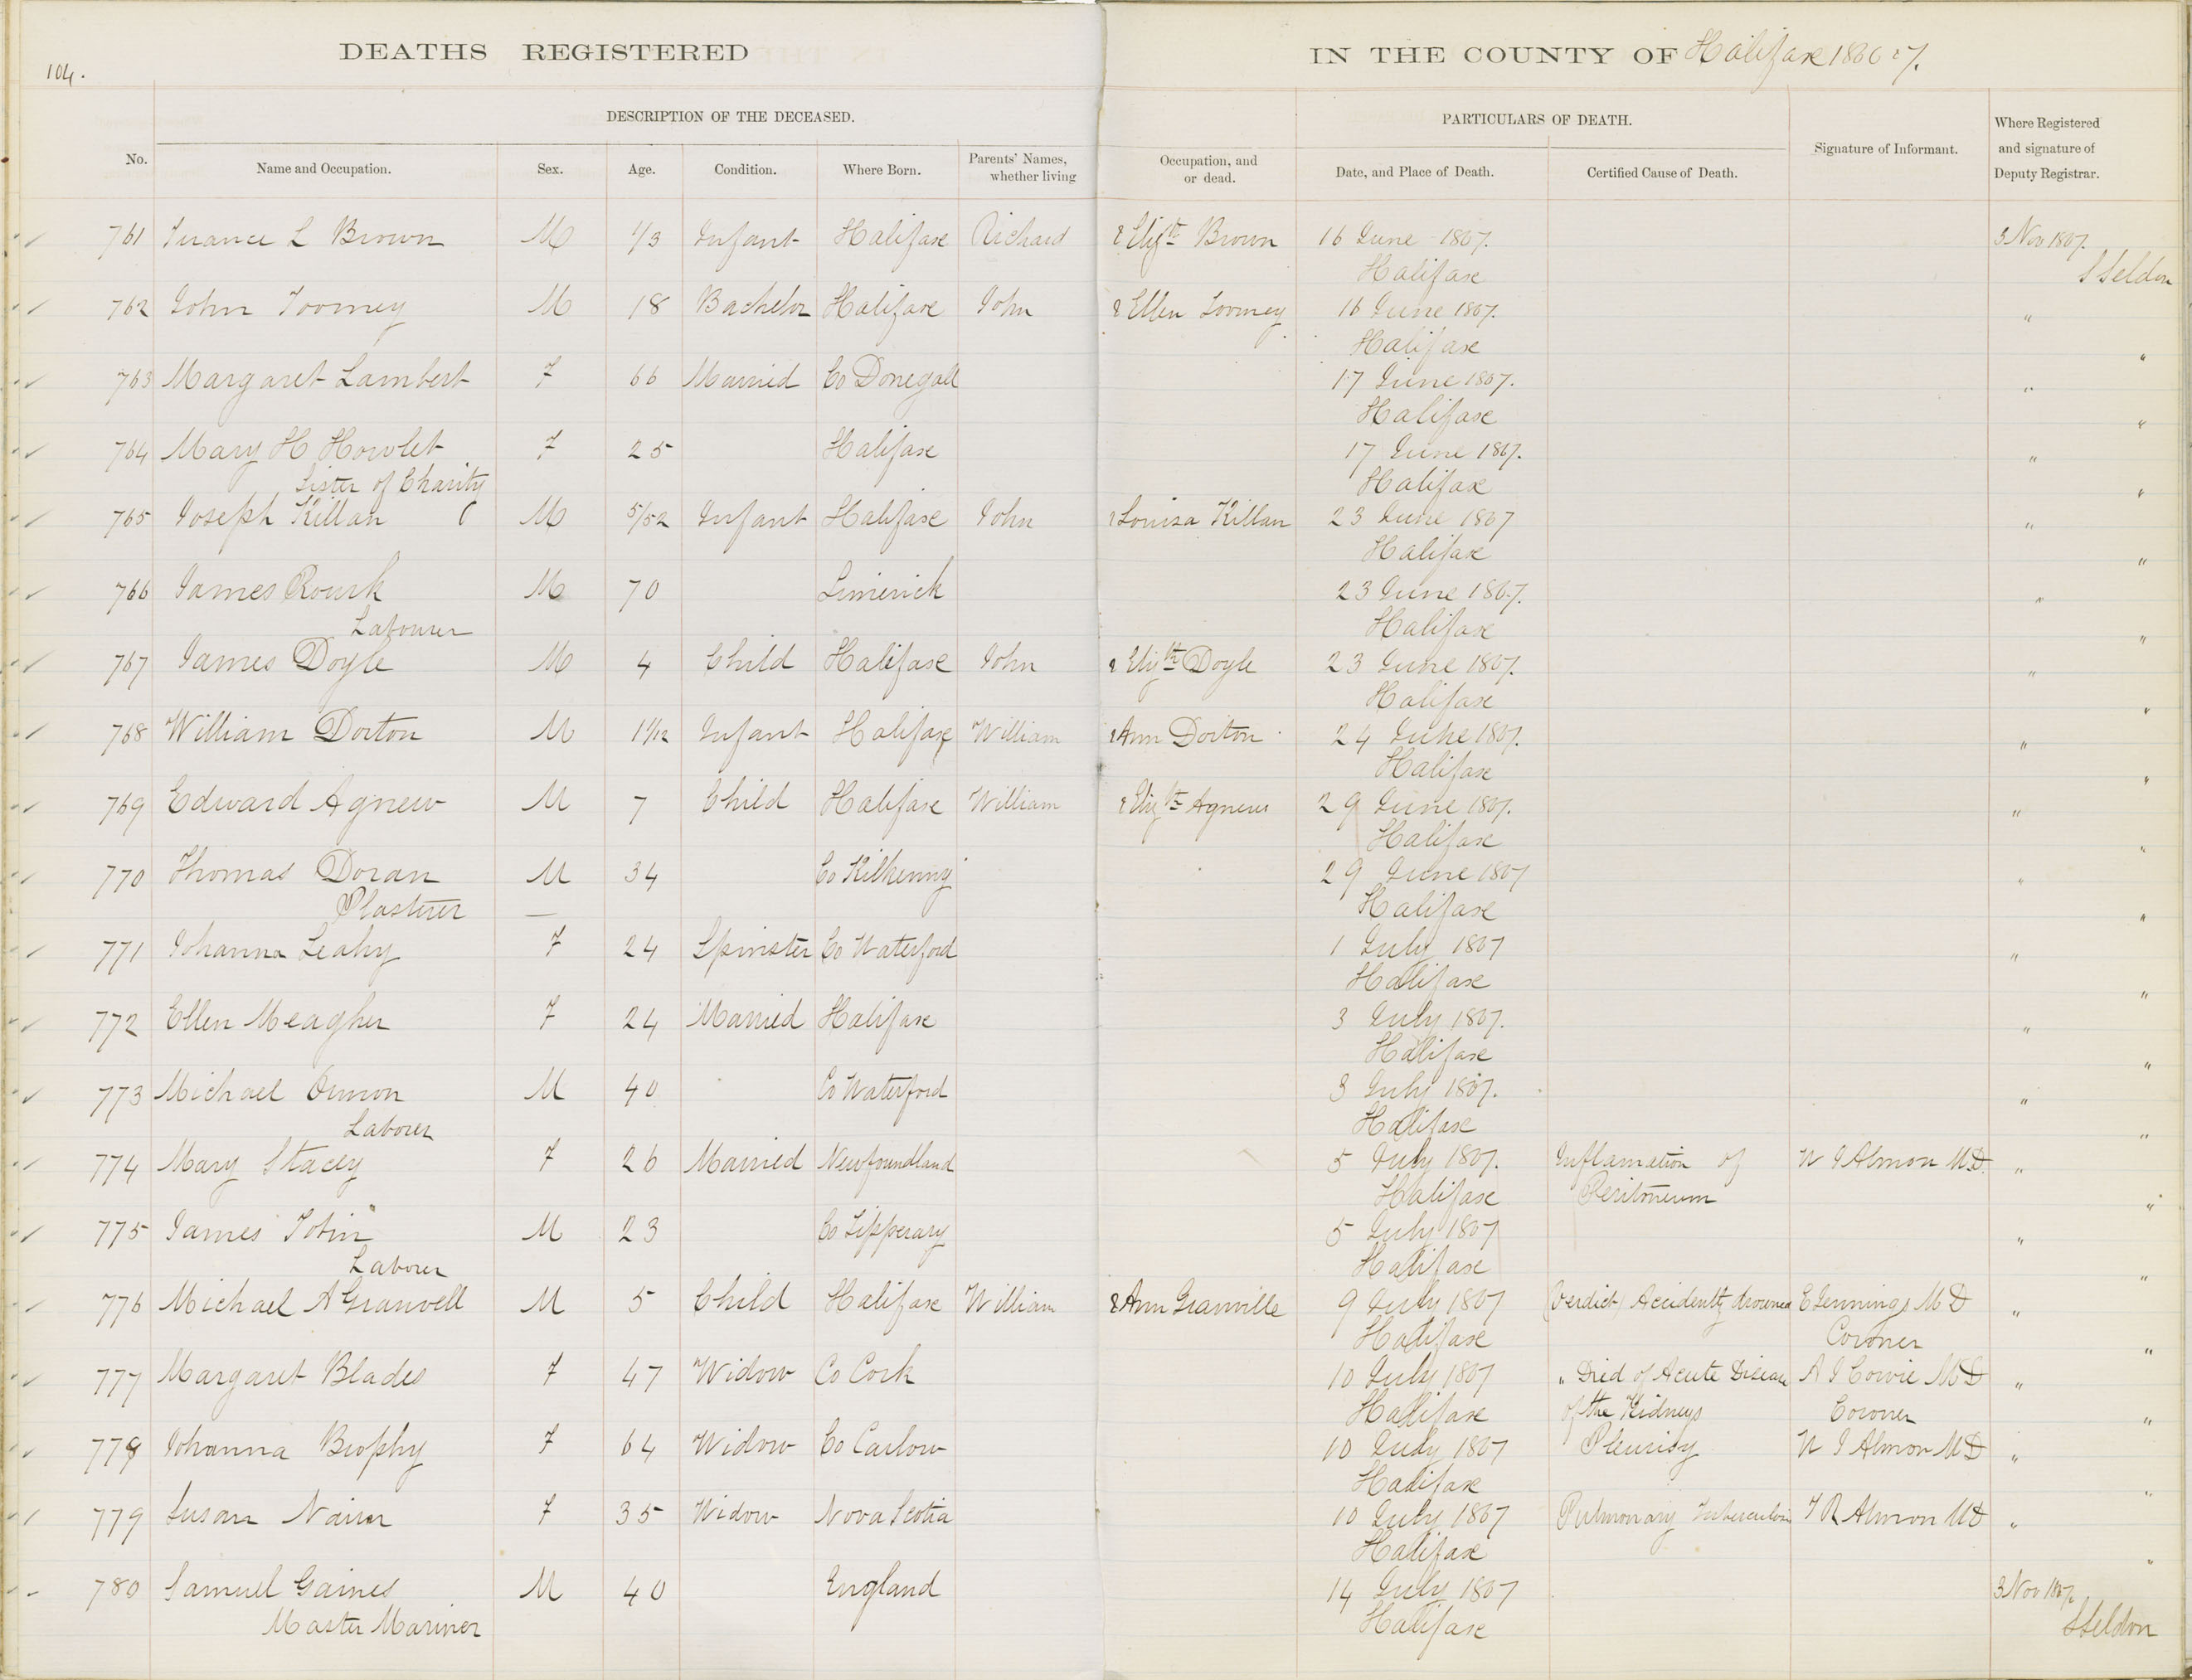 104.
DEATHS REGISTERED IN THE COUNTY OF Halifax 1866 & 7.
DESCRIPTION OF THE DECEASED. PARTICULARS OF DEATH.
No. Name and Occupation. Sex. Age. Condition. Where Born. Parents' Names, whether living Occupation, and or dead. Date, and Place of Death. Certified Cause of Death. Signature of Informant. Where Registered and signature of Deputy Registrar.
761 L Brown M 1/3 Infant Halifax Richard & Elizth Brown 16 June 1867. 3 Nov 1867.
Halifax S Seldon
762 John Toomey M 18 Bachelor Halifax John & Ellen Toomey 16 June 1867. "
Halifax "
763 Margaret Lambert F 66 Married Co Donegall 17 June 1867. "
Halifax "
764 Mary H Howlet F 25 Halifax 17 June 1867. "
Sister of Charity Halifax "
765 Joseph Killan M 5/52 Infant Halifax John & Louisa Killan 23 June 1867 "
Halifax "
766 James Rourk M 70 Limerick 23 June 1867. "
Labourer Halifax "
767 James Doyle M 4 Child Halifax John & Elizth Doyle 23 June 1867. "
Halifax "
768 William Dorton M 1 1/12 Infant Halifax William & Ann Dorton 24 June 1867. "
Halifax "
769 Edward Agnew M 7 Child Halifax William & Elizth Agnew 29 June 1867. "
Halifax "
770 Thomas Doran M 34 Co Kilkenny 29 June 1867 "
Plasterer Halifax "
771 Johanna Leahy F 24 Spinster Co Waterford 1 July 1867 "
Halifax "
772 Ellen Meagher F 24 Married Halifax 3 July 1867. "
Halifax "
773 Michael M 40 Co Waterford 3 July 1867. "
Laborer Halifax "
774 Mary Stacey F 26 Married Newfoundland 5 July 1867. Inflamation of W J Almon MD. "
Halifax Peritoneum "
775 James Tobin M 23 Co Tipperary 5 July 1867 "
Laborer Halifax "
776 Michael A Granvell M 5 Child Halifax William & Ann Granville 9 July 1867 (Verdict) Accidently drowned E Jennings MD "
Halifax Coroner "
777 Margaret Blades F 47 Widow Co Cork 10 July 1867 " Died of Acute Disease A J Cowie MD "
Halifax of the Kidneys Coroner "
778 Johanna Brophy F 64 Widow Co Carlow 10 July 1867 Pleurisy W J Almon MD "
Halifax "
779 Susan Nairn F 35 Widow Nova Scotia 10 July 1867 Pulmonary Tuberculosis T R Almon MD "
Halifax "
780 Samuel Gaines M 40 England 14 July 1867 3 Nov 1867.
Master Mariner Halifax S Seldon